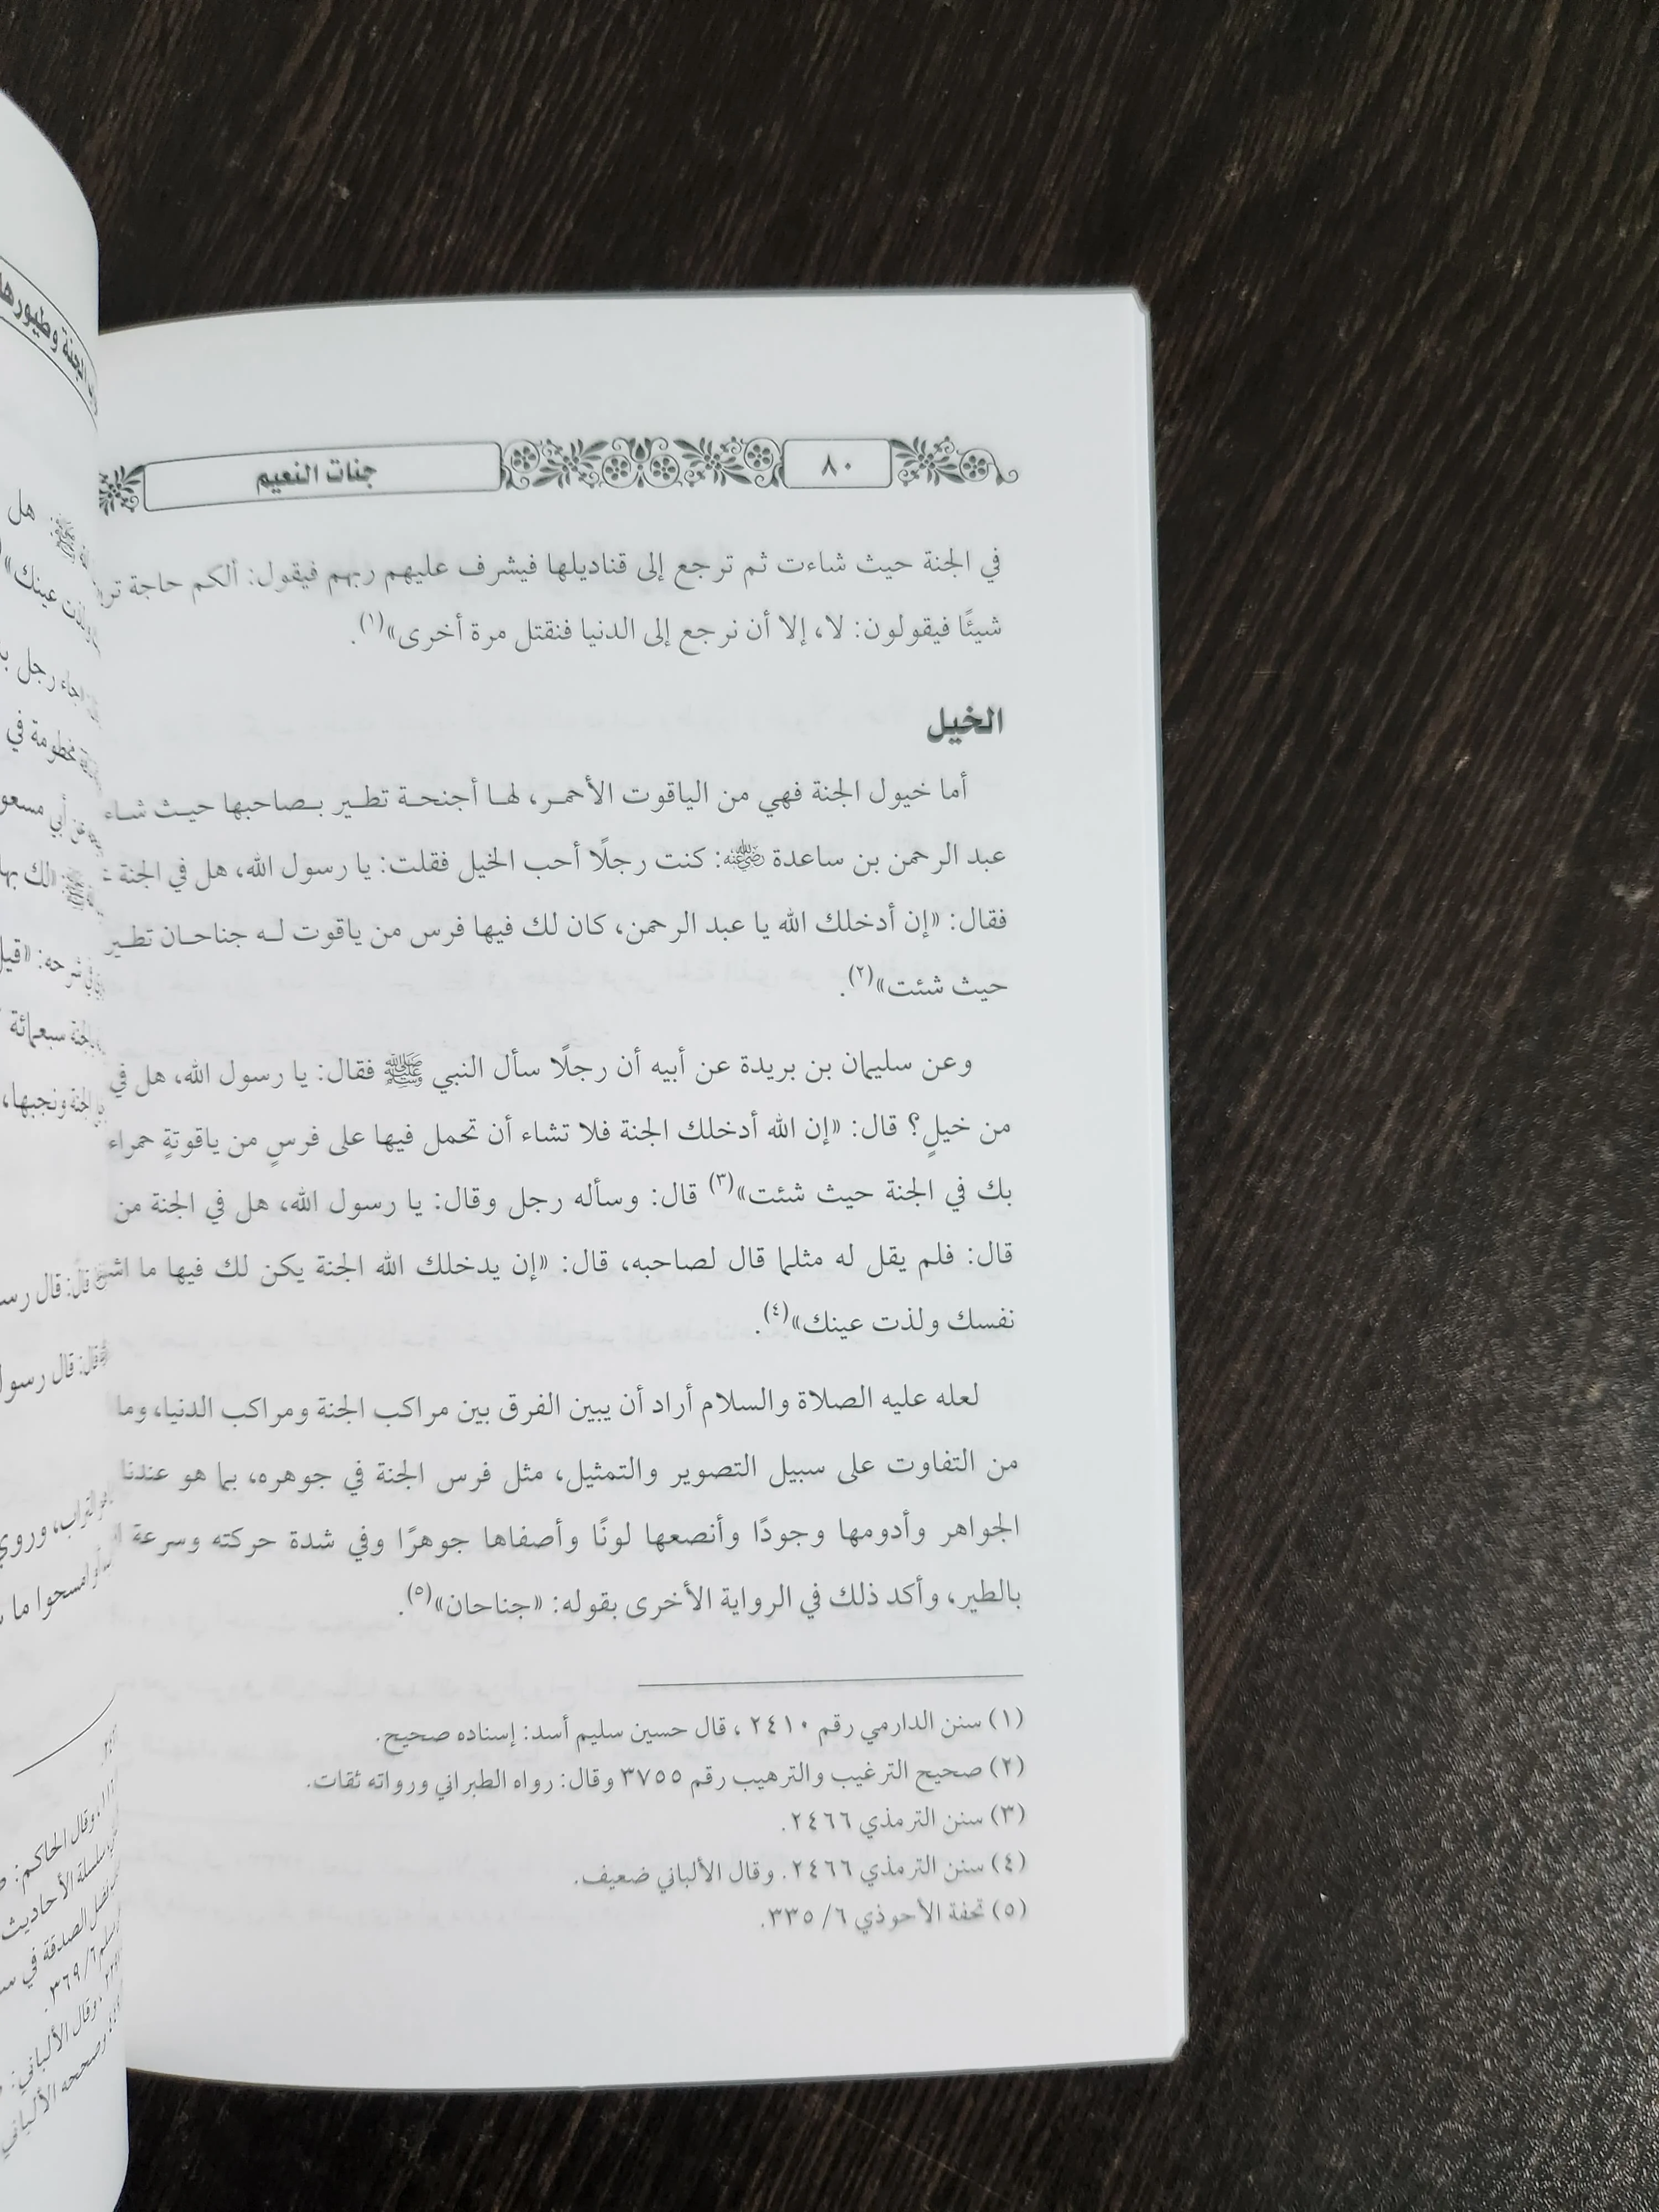 ٨٠
جنات النعيم
في الجنة حيث شاءت ثم ترجع إلى قناديلها فيشرف عليهم ربهم فيقول: ألكم حاجة
شيئًا فيقولون: لا، إلا أن نرجع إلى الدنيا فنقتل مرة أخرى»(١).
الخيل
أما خيول الجنة فهي من الياقوت الأحمر، لها أجنحة تطير بصاحبها حيث شاء
عبد الرحمن بن ساعدة ﵁: كنت رجلًا أحب الخيل فقلت: يا رسول الله، هل في الجنة
فقال: «إن أدخلك الله يا عبد الرحمن، كان لك فيها فرس من ياقوت له جناحان تطير
حيث شئت»(٢).
وعن سليمان بن بريدة عن أبيه أن رجلًا سأل النبي ﷺ فقال: يا رسول الله، هل في
من خيلٍ؟ قال: «إن الله أدخلك الجنة فلا تشاء أن تحمل فيها على فرسٍ من ياقوتةٍ حمراء
بك في الجنة حيث شئت»(٣) قال: وسأله رجل وقال: يا رسول الله، هل في الجنة من
قال: فلم يقل له مثلما قال لصاحبه، قال: «إن يدخلك الله الجنة يكن لك فيها ما
نفسك ولذت عينك»(٤).
لعله عليه الصلاة والسلام أراد أن يبين الفرق بين مراكب الجنة ومراكب الدنيا، وما
من التفاوت على سبيل التصوير والتمثيل، مثل فرس الجنة في جوهره، بما هو عندنا
الجواهر وأدومها وجودًا وأنصعها لونًا وأصفاها جوهرًا وفي شدة حركته وسرعة
بالطير، وأكد ذلك في الرواية الأخرى بقوله: «جناحان»(٥).
(١) سنن الدارمي رقم ٢٤١٠ ، قال حسين سليم أسد: إسناده صحيح.
(٢) صحيح الترغيب والترهيب رقم ٣٧٥٥ وقال: رواه الطبراني ورواته ثقات.
(٣) سنن الترمذي ٢٤٦٦.
(٤) سنن الترمذي ٢٤٦٦. وقال الألباني ضعيف.
(٥) تحفة الأحوذي ٦/ ٣٣٥.
الجنة وطيورها
هل
عينك»
جاء رجل
مخطومة في
عن أبي
لك بها
في شرحه: «قيل
الجنة سبعمائة
الجنة ونجبها،
قال: قال
قال: قال رسول
التراب، وروي
امسحوا ما
وقال الحاكم:
سلسلة الأحاديث
فضل الصدقة في
٦/ ٣٦٩.
وقال الألباني:
وصححه الألباني